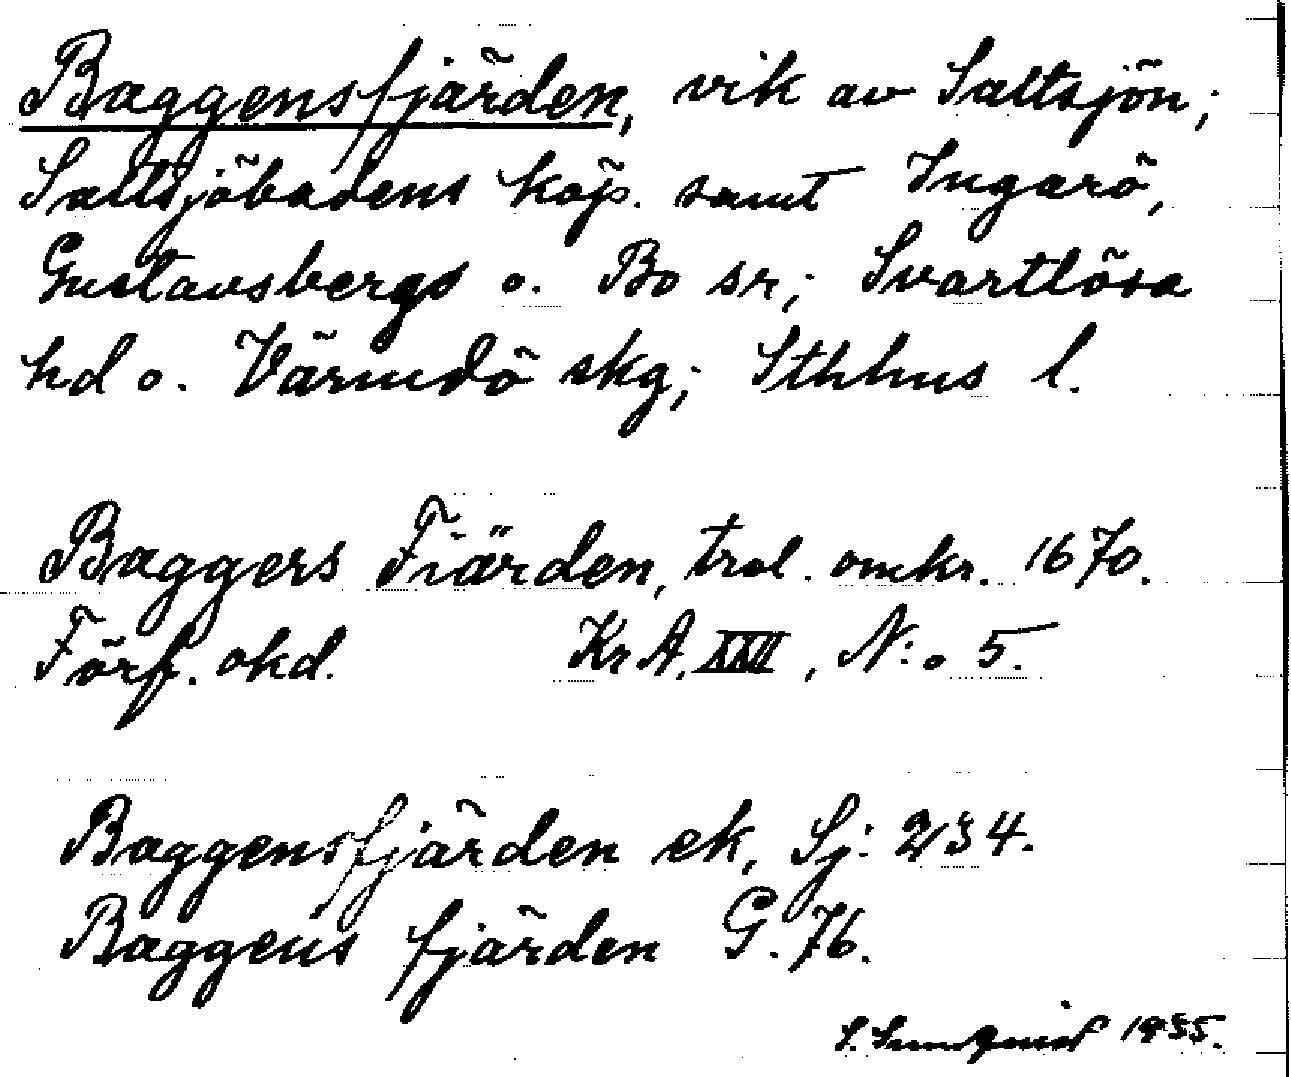 Baggensfjärden, vik av Saltsjön;
Saltsjöbadens köp. samt Ingarö,
Gustavsbergs o. Bo sr; Svartlösa
hd o. Värmdö skg; Sthlms l.
Baggers Fiärden, trol. omkr. 1670.
Förf. okd. KrA. XXII, N:o 5.
Baggensfjärden ek, Sj: 234.
Baggens fjärden G. 76.
S. Sundquist 1935.